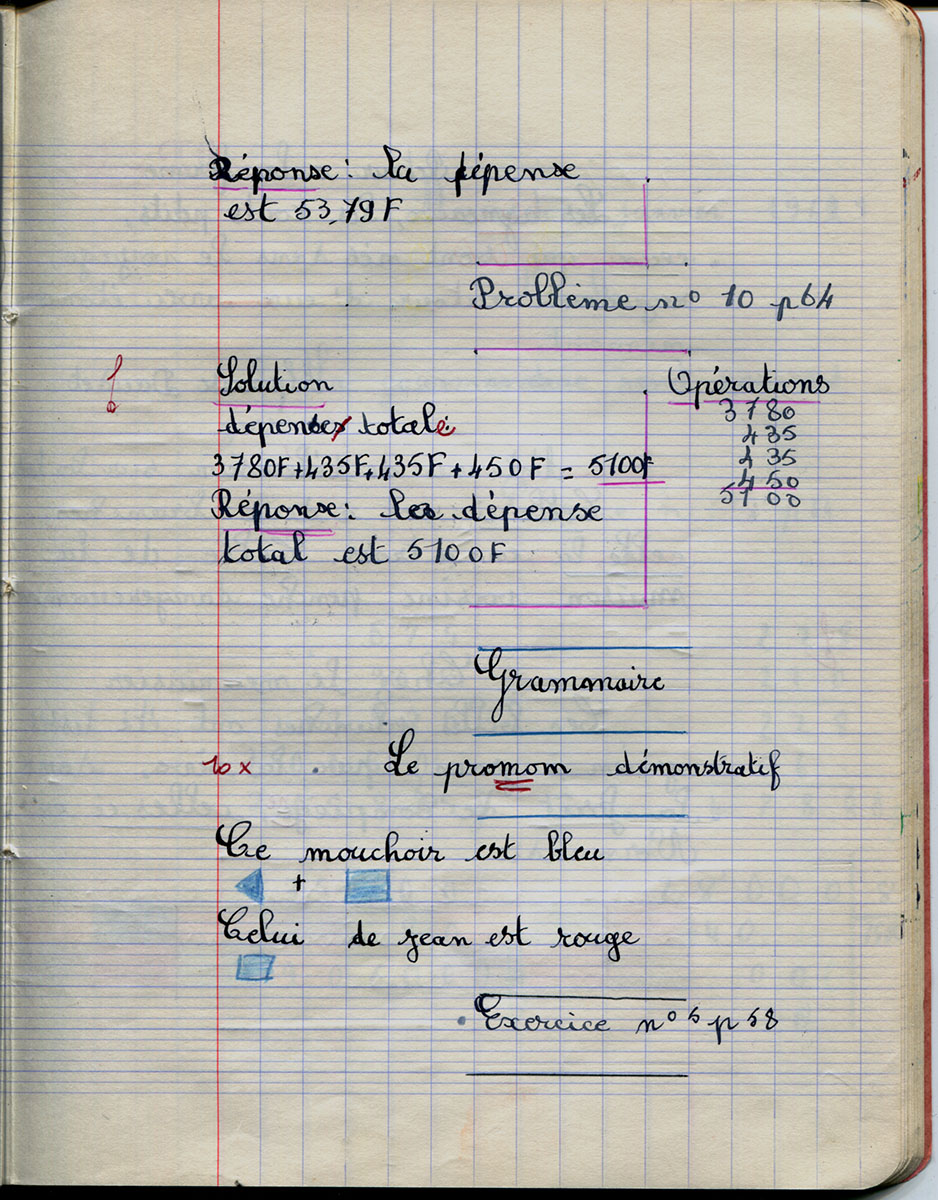 Réponse: la dépense
est 53,79 F
Problème n° 10 p64
Solution
Opérations
dépenses totale:
3780F+435F+435F+450F = 5100F
3780
435
435
450
5100
Réponse: la dépense
total est 5100F
Grammaire
10 x
Le promom démonstratif
Ce mouchoir est bleu
+
Celui de jean est rouge
Exercice n° 5 p 58